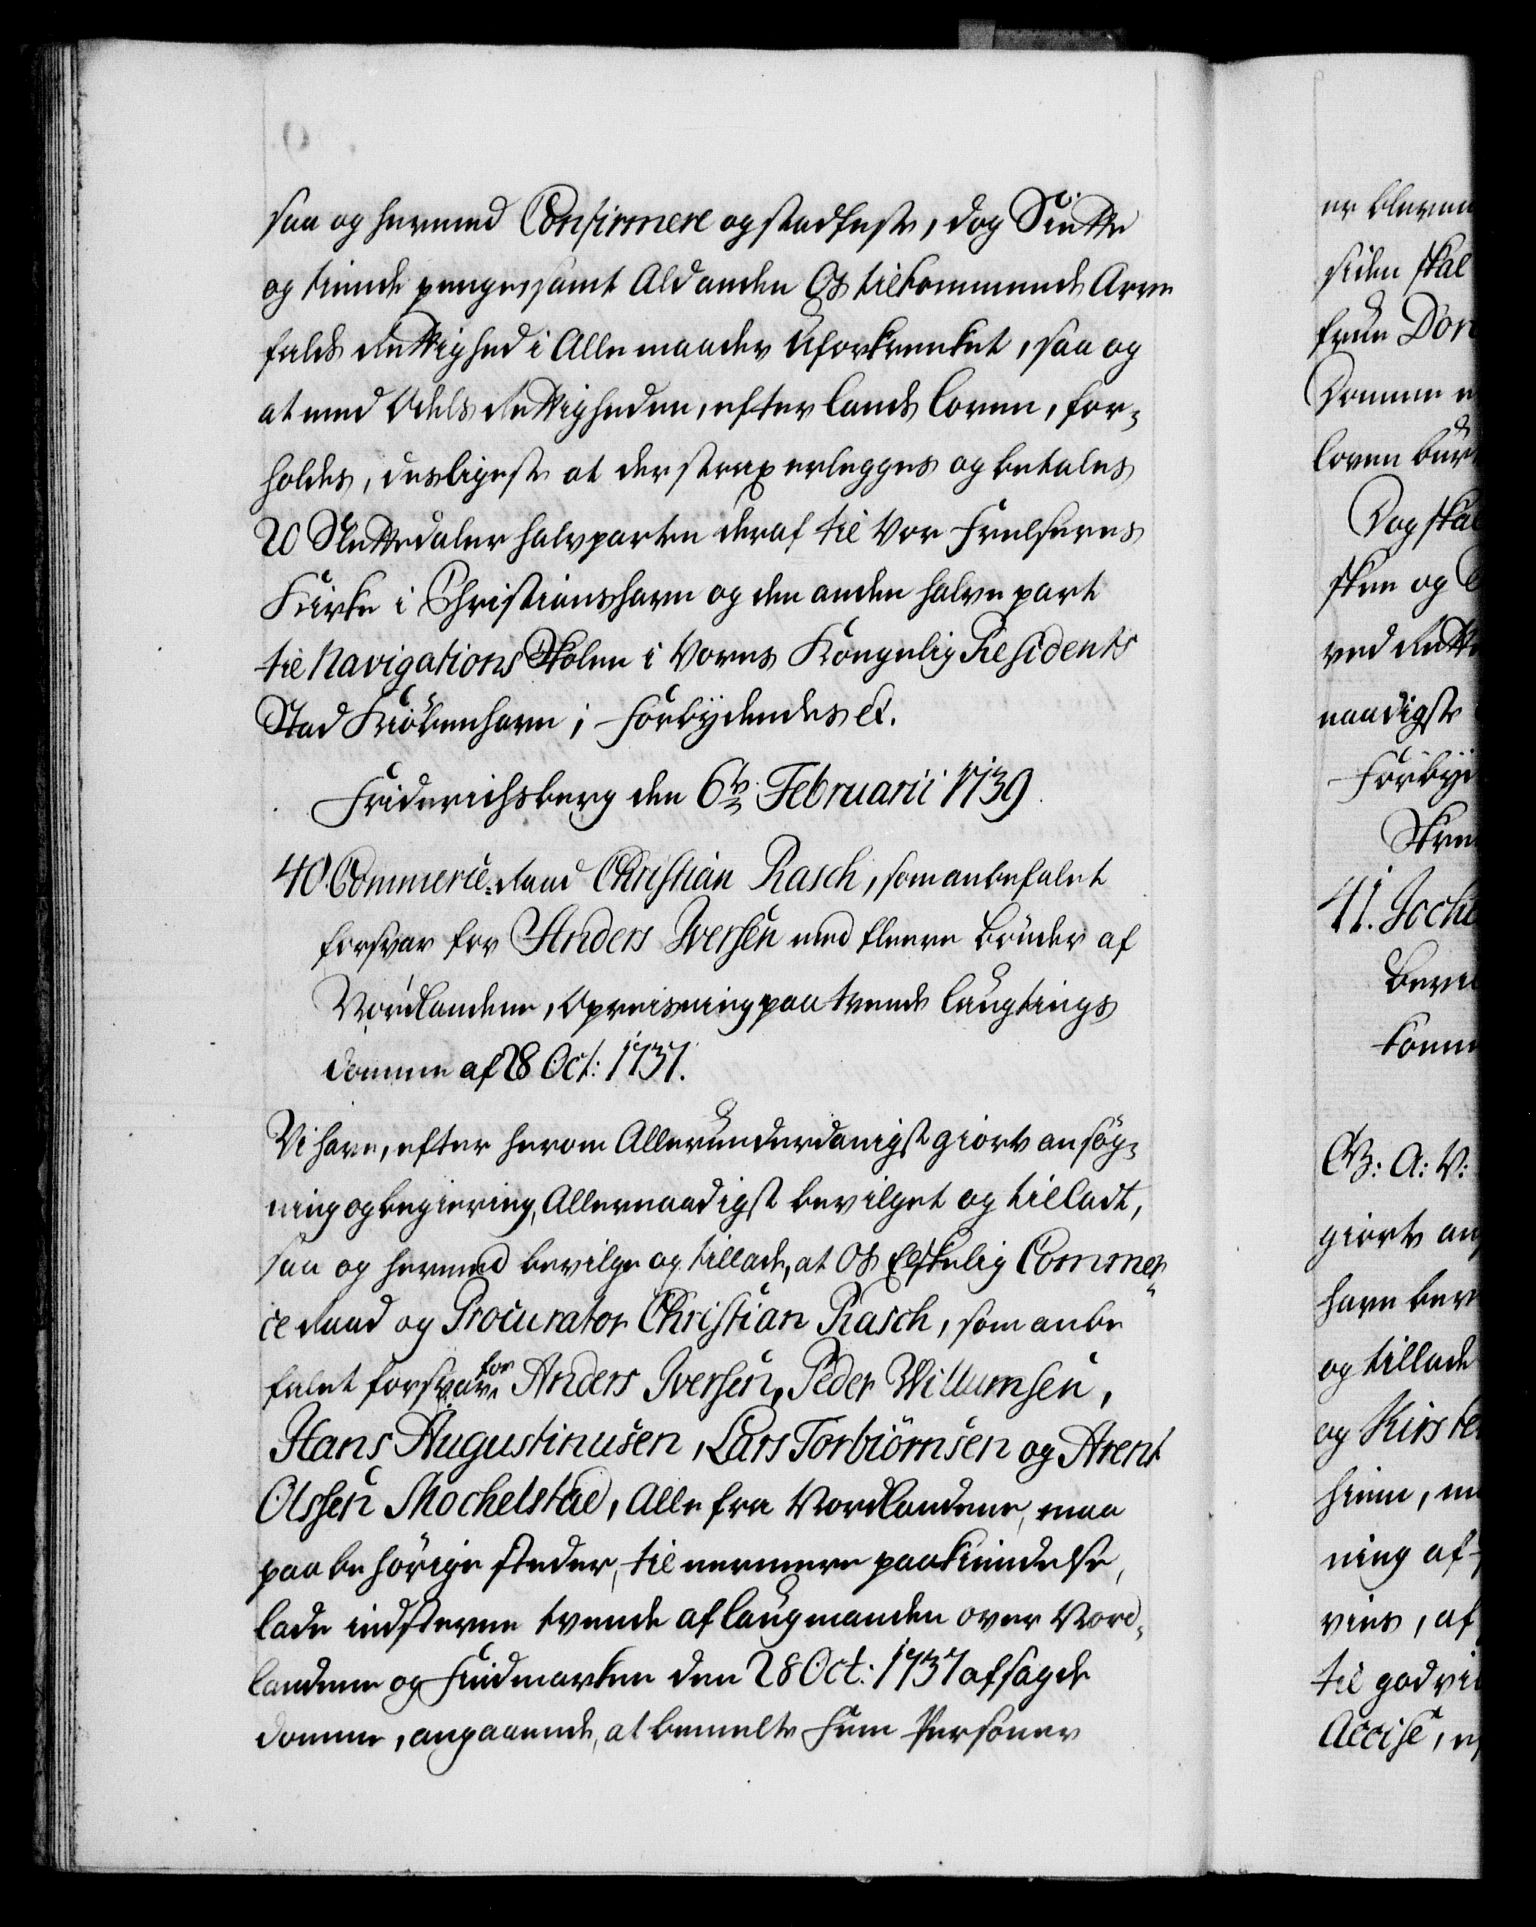 saa og hermed Confirmere og stadfeste, dog Siette
og tiende penge, samt Ald anden Os tilkommende Arve
falds Rettighed i Alle maader Uforkrenket, saa og
at med Odels Rettigheden, efter lands loven, for-
holdes, desligeste at der strax erlegges og betales
20 Slettedaler halvparten deraf til Vor Frelseres
Kirke i Christianshavn og den anden halve part
til Navigations Skolen i Vores Kongelig Residents
Stad Kiöbenhavn; Forbydendes &.
Friderichsberg den 6te Februarii 1739
40. Commerce-Raad Christian Rasch, som anbefalet
forsvar for Anders Iversen med fleere Bönder af
Nordlandene, Opreisning paa tvende laugtings
domme af 28 Oct: 1737.
Vi have, efter herom Allerunderdanigst giorte ansög-
ning og begiering, Allernaadigst bevilget og tilladt,
saa og hermed bevilge og tillade, at Os Elskelig Commer
ce Raad og Procurator Christian Rasch, som anbe
falet forsvar for Anders Iversen, Peder Willumsen,
Hans Augustinusen, Lars Torbiörnsen og Arent
Olssen Skochelstad, Alle fra Nordlandene, maa
paa behörige steder, til nermere paakiendelse,
lade indsterne tvende af laugmanden over Nord-
landene og Findmarken den 28 Oct: 1737 afsagde
domme, angaaende, at bemelte Fem Personer
er bleven
siden skal
frue Dor
Domme
loven bur
Dog skal
skee og
ved Rette
naadigste
Forbyd
Skre
41. Joche
Bevil
komm
G: A: V:
giorte an
have bev
og tillade
og Kirste
hinne,
ning af
vies, af
til godvil
Accise,